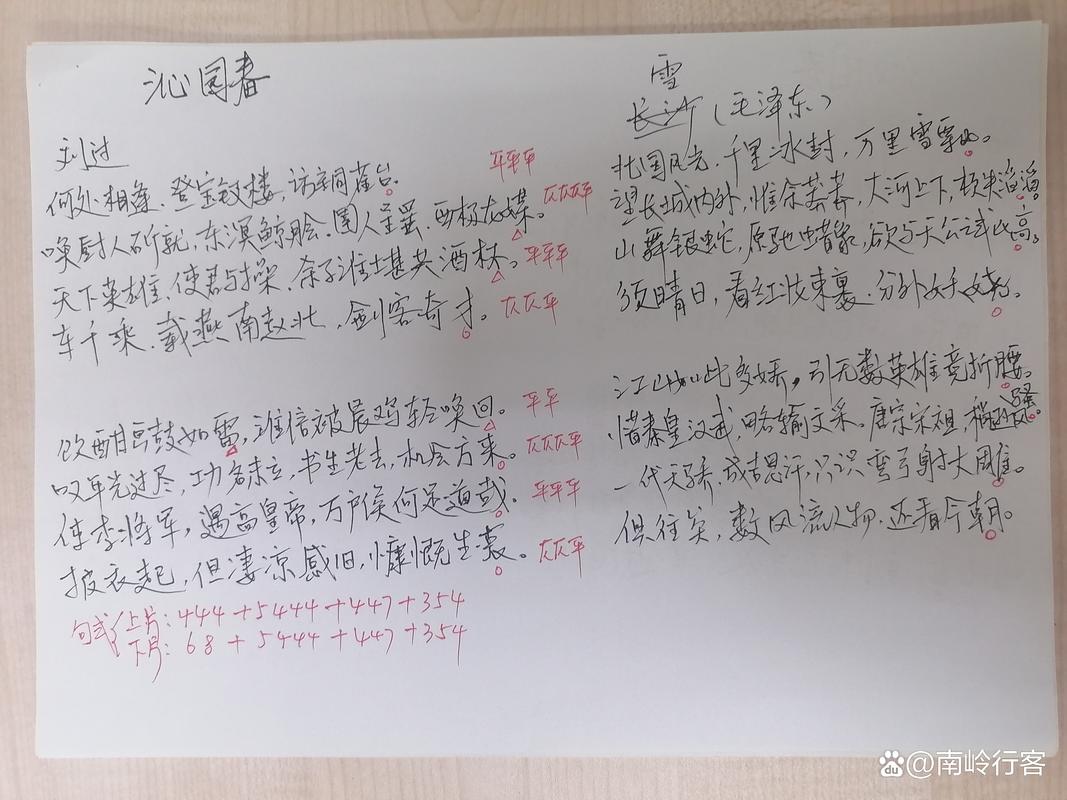 沁园春
刘过
何处相逢、登宝钗楼，访铜雀台。 平平平
唤厨人斫就，东溟鲸脍、圉人呈罢、西极龙媒。 仄仄仄平
天下英雄、使君与操、余子谁堪共酒杯。 平平平
车千乘、载燕南赵北，剑客奇才。 仄仄平
饮酣鼓如雷，谁信被晨鸡轻唤回。 平平
叹年光过尽，功名未立，书生老去，机会方来。 仄仄仄平
使李将军，遇高皇帝，万户侯何足道哉。 平平平
披衣起，但凄凉感旧，慷慨生哀。 仄仄平
句式 上片：444+5444+447+354
下片：68+5444+447+354
雪
长沙（毛泽东）
北国风光、千里冰封，万里雪飘。
望长城内外，惟余莽莽，大河上下，顿失滔滔。
山舞银蛇，原驰蜡象，欲与天公试比高。
须晴日，看红妆素裹、分外妖娆。
江山如此多娇，引无数英雄竞折腰。
惜秦皇汉武，略输文采。唐宗宋祖，稍逊风骚。
一代天骄、成吉思汗，只识弯弓射大雕。
俱往矣，数风流人物、还看今朝。
du百度@南岭行客